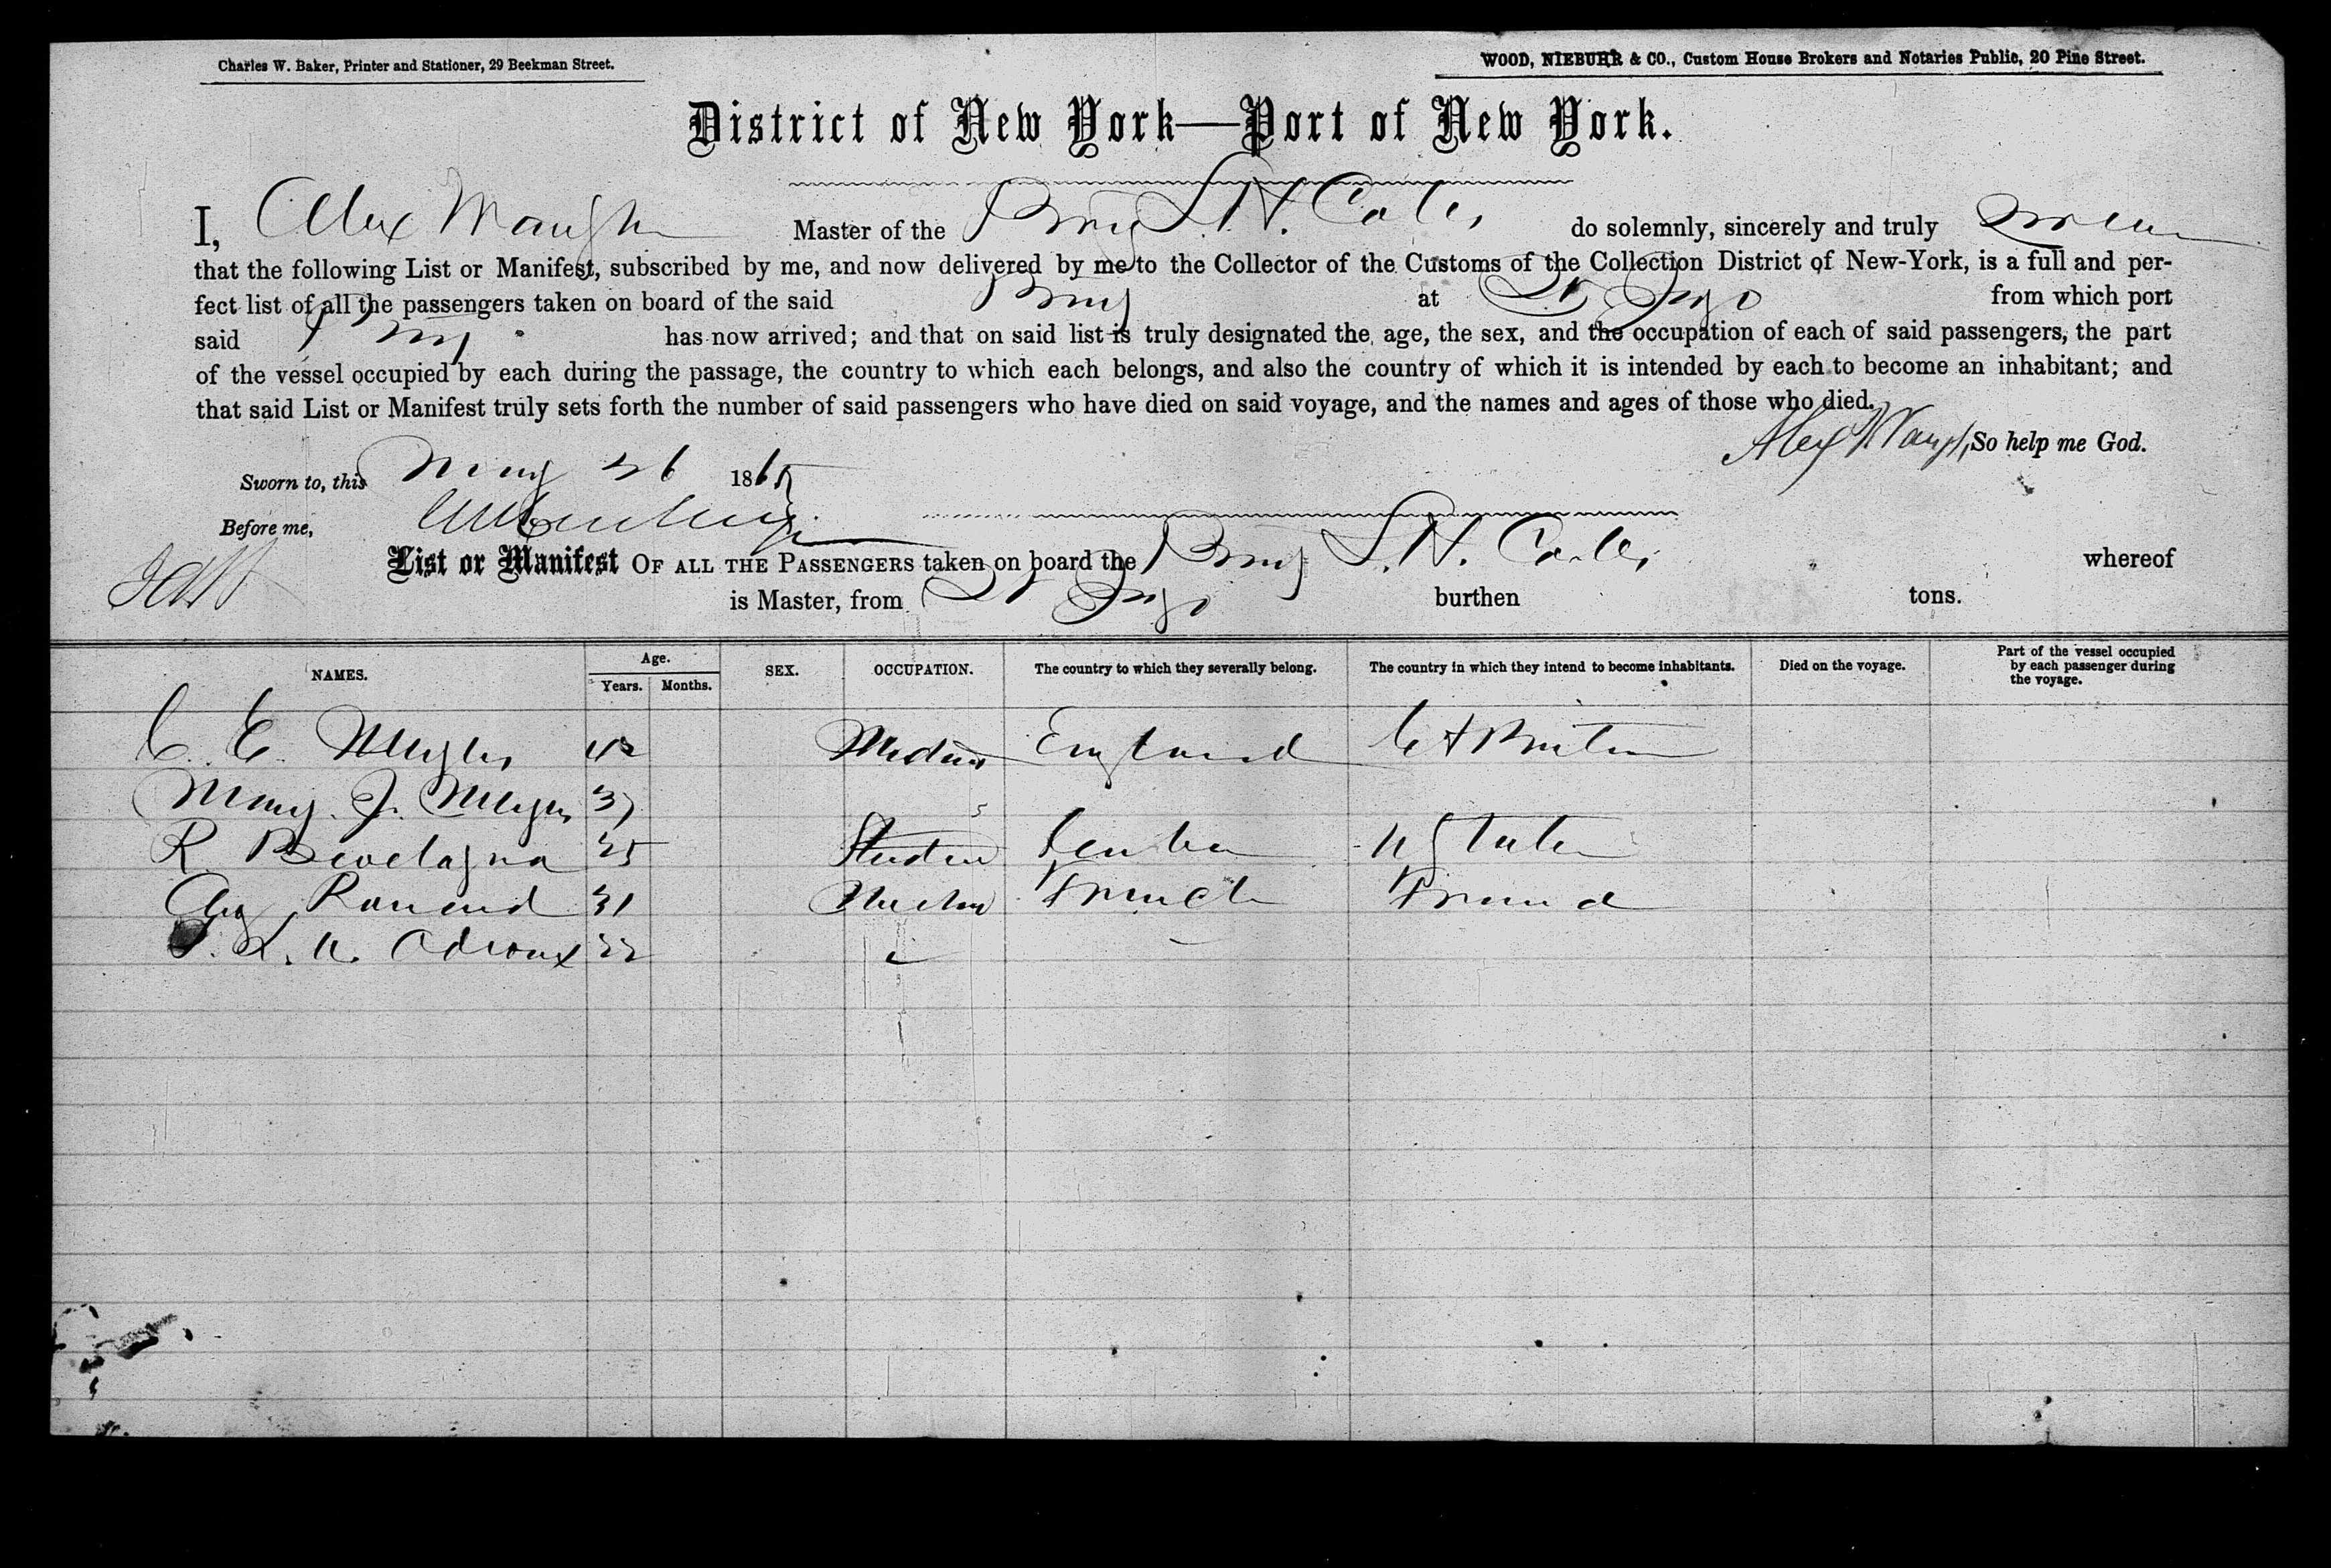 Charles W. Baker, Printer and Stationer, 29 Beekman Street.
WOOD, NIEBUHR & CO., Custom House Brokers and Notaries Public, 20 Pine Street.
District of New York—Port of New York.
I, Alex Waugh Master of the Brig S. H. Coles do solemnly, sincerely and truly swear
that the following List or Manifest, subscribed by me, and now delivered by me to the Collector of the Customs of the Collection District of New-York, is a full and per-
fect list of all the passengers taken on board of the said Brig at St Jago from which port
said Brig has now arrived; and that on said list is truly designated the age, the sex, and the occupation of each of said passengers, the part
of the vessel occupied by each during the passage, the country to which each belongs, and also the country of which it is intended by each to become an inhabitant; and
that said List or Manifest truly sets forth the number of said passengers who have died on said voyage, and the names and ages of those who died.
Alex Waugh So help me God.
Sworn to, this May 26 1865
Before me,
List or Manifest OF ALL THE PASSENGERS taken on board the Brig S. H. Coles whereof
is Master, from St Jago burthen tons.
NAMES. Age. Years. Months. SEX. OCCUPATION. The country to which they severally belong. The country in which they intend to become inhabitants. Died on the voyage. Part of the vessel occupied by each passenger during the voyage.
C. E. 42 England Gt Britain
Mary J. 37
R. 25 Student Cuba U States
31 French France
22